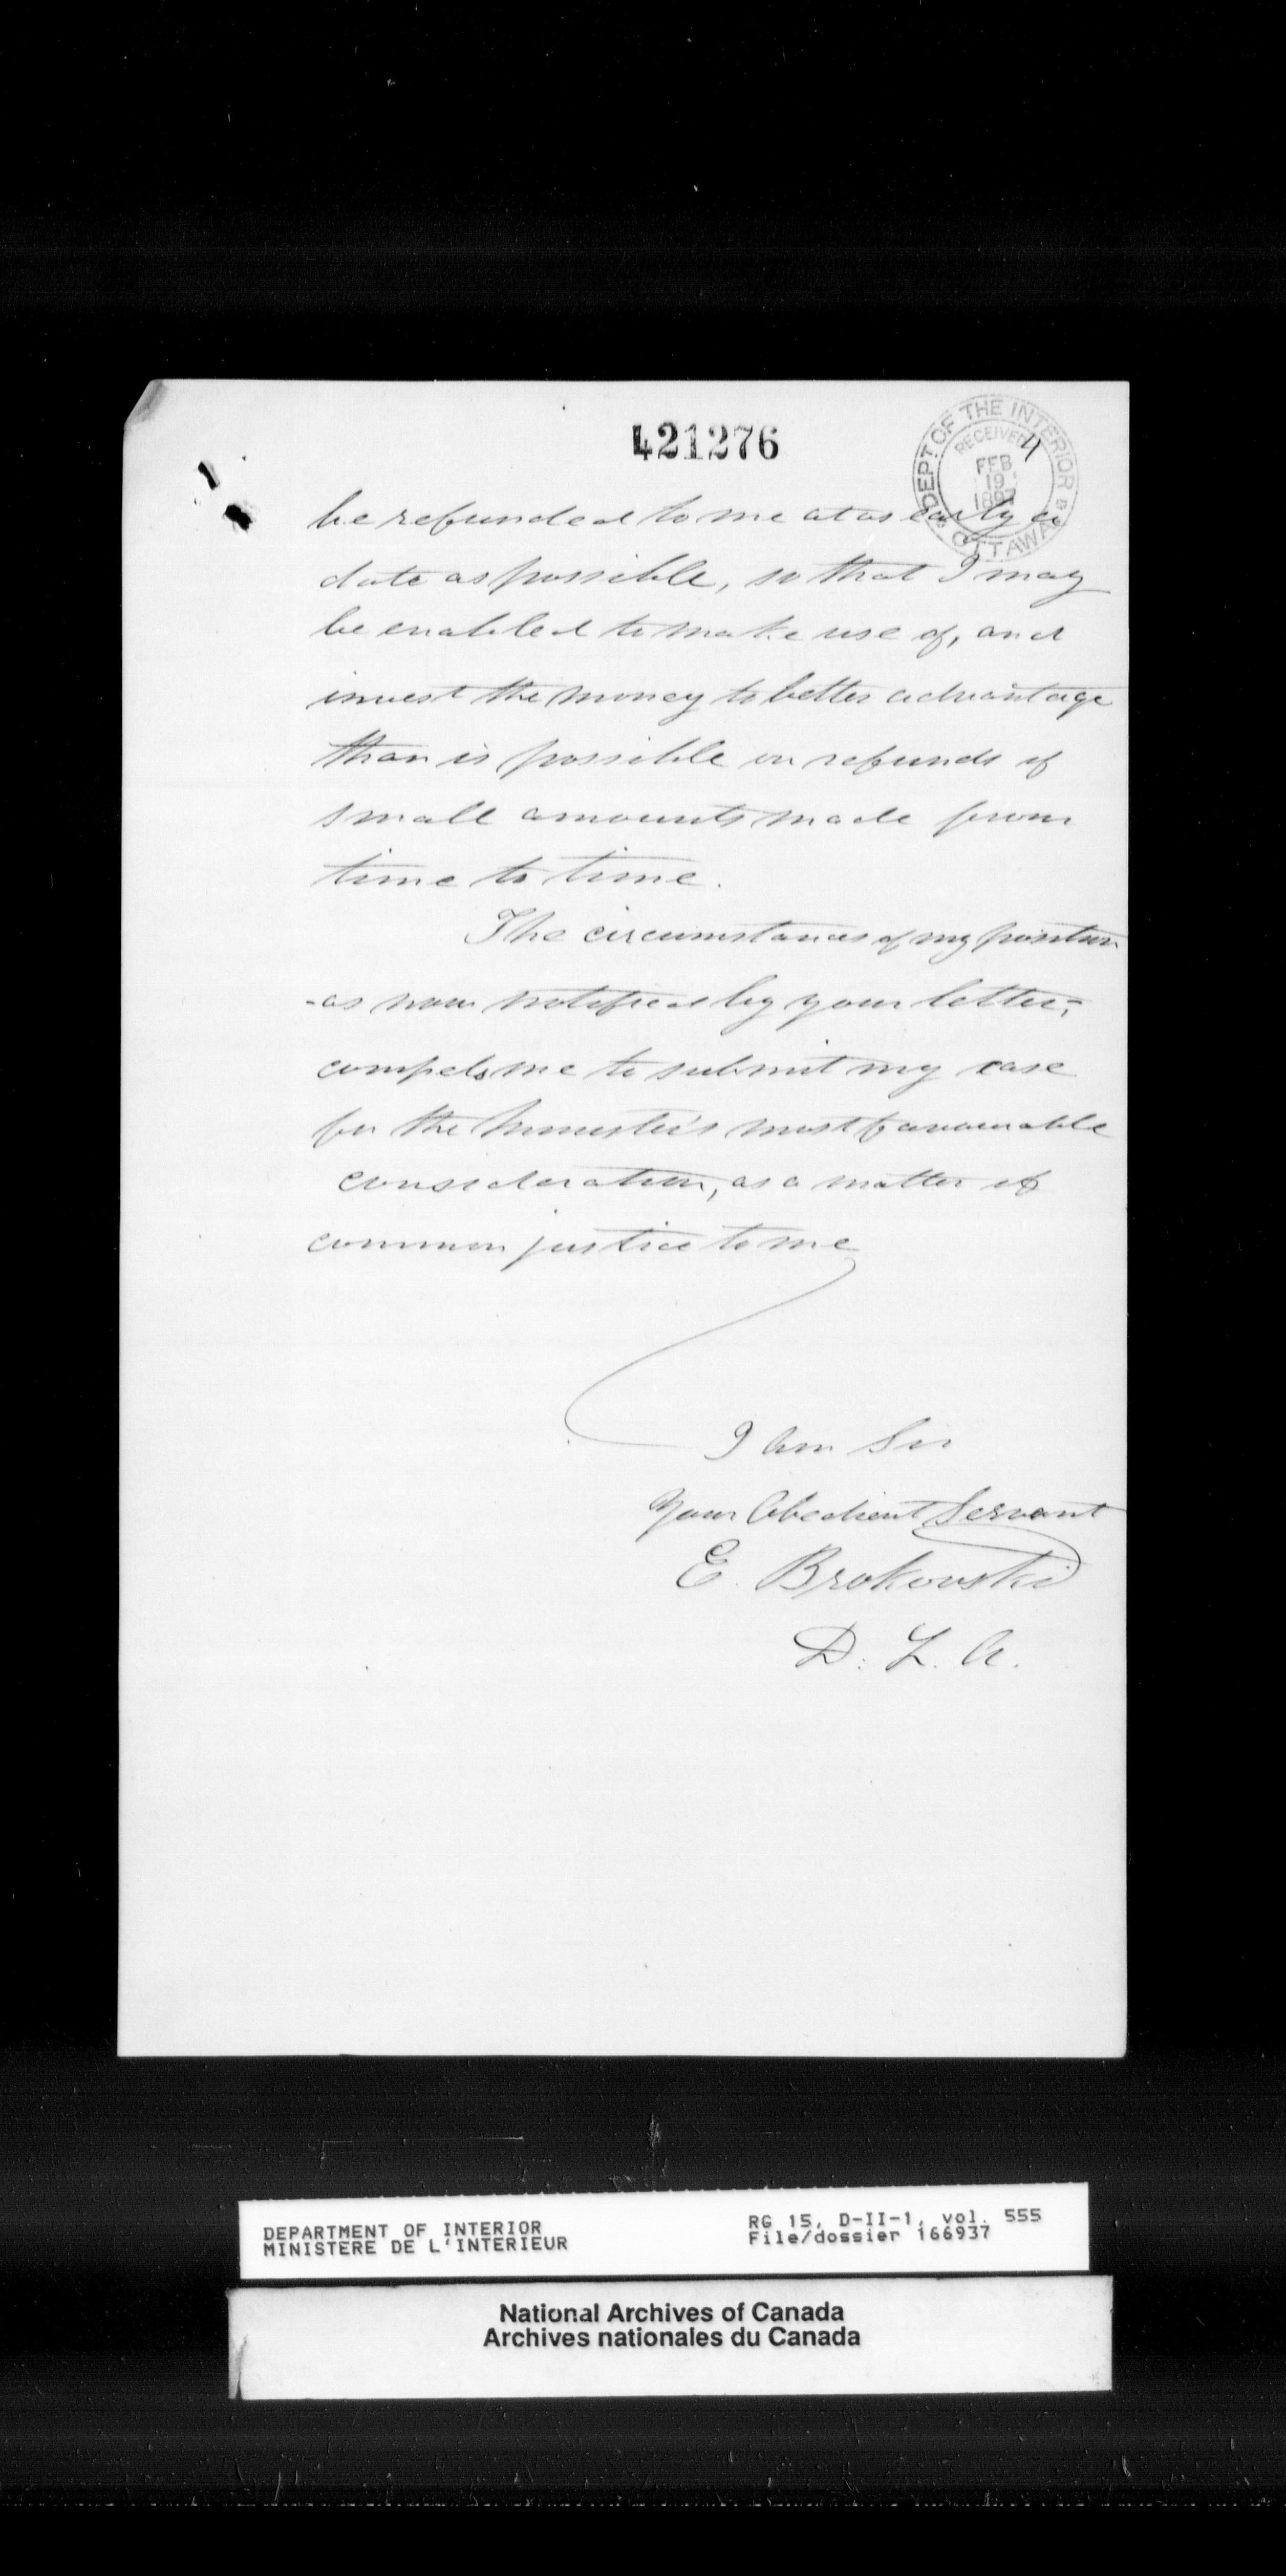 421276
DEPT. OF THE INTERIOR
RECEIVED
FEB
19
1897
OTTAWA
be refunded to me at as early a
date as possible, so that I may
be enabled to make use of, and
invest the money to better advantage
than is possible on refunds of
small amounts made from
time to time.
The circumstances of my position
- as now notified by your letter, -
compels me to submit my case
for the Minister's most favourable
consideration, as a matter of
common justice to me
I am Sir
Your Obedient Servant
E. Brokovski
D. L. A.
DEPARTMENT OF INTERIOR
MINISTERE DE L'INTERIEUR
RG 15, D-II-1, vol. 555
File/dossier 166937
National Archives of Canada
Archives nationales du Canada